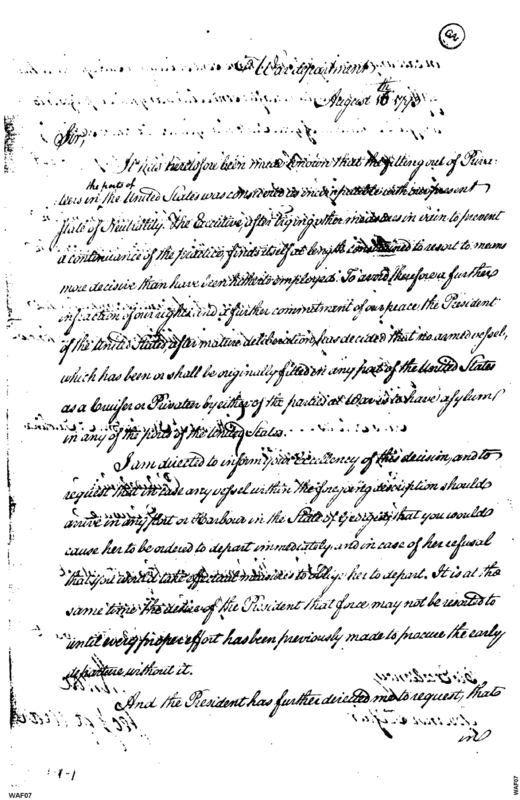 War department
August 16th 1793
Sir,
It has heretofore been made known that the fitting out of Priva-
teers in the ports of the United States was considered as incompatible with our present
State of Neutrality. The Executive, after trying other measures in vain to prevent
a continuance of the practice, finds itself at length constrained to resort to means
more decisive than have been hitherto employed. To avoid therefore a further
infraction of our rights and a further commitment of our peace the President
of the United States, after mature deliberation, has decided that no armed vessel,
which has been or shall be originally fitted in any port of the United States
as a Cruiser or Privateer by either of the parties at War is to have asylum
in any of the ports of the United States.
I am directed to inform your Excellency of this decision, and to
request that in case any vessel within the foregoing description should
arrive in any port or Harbour in the State of Georgia, that you would
cause her to be ordered to depart immediately and in case of her refusal
that you would take effectual measures to oblige her to depart. It is at the
same time the desire of the President that force may not be resorted to
until every proper effort has been previously made to procure the early
departure without it.
And the President has further directed me to request, that
in
WAF07
WAF07